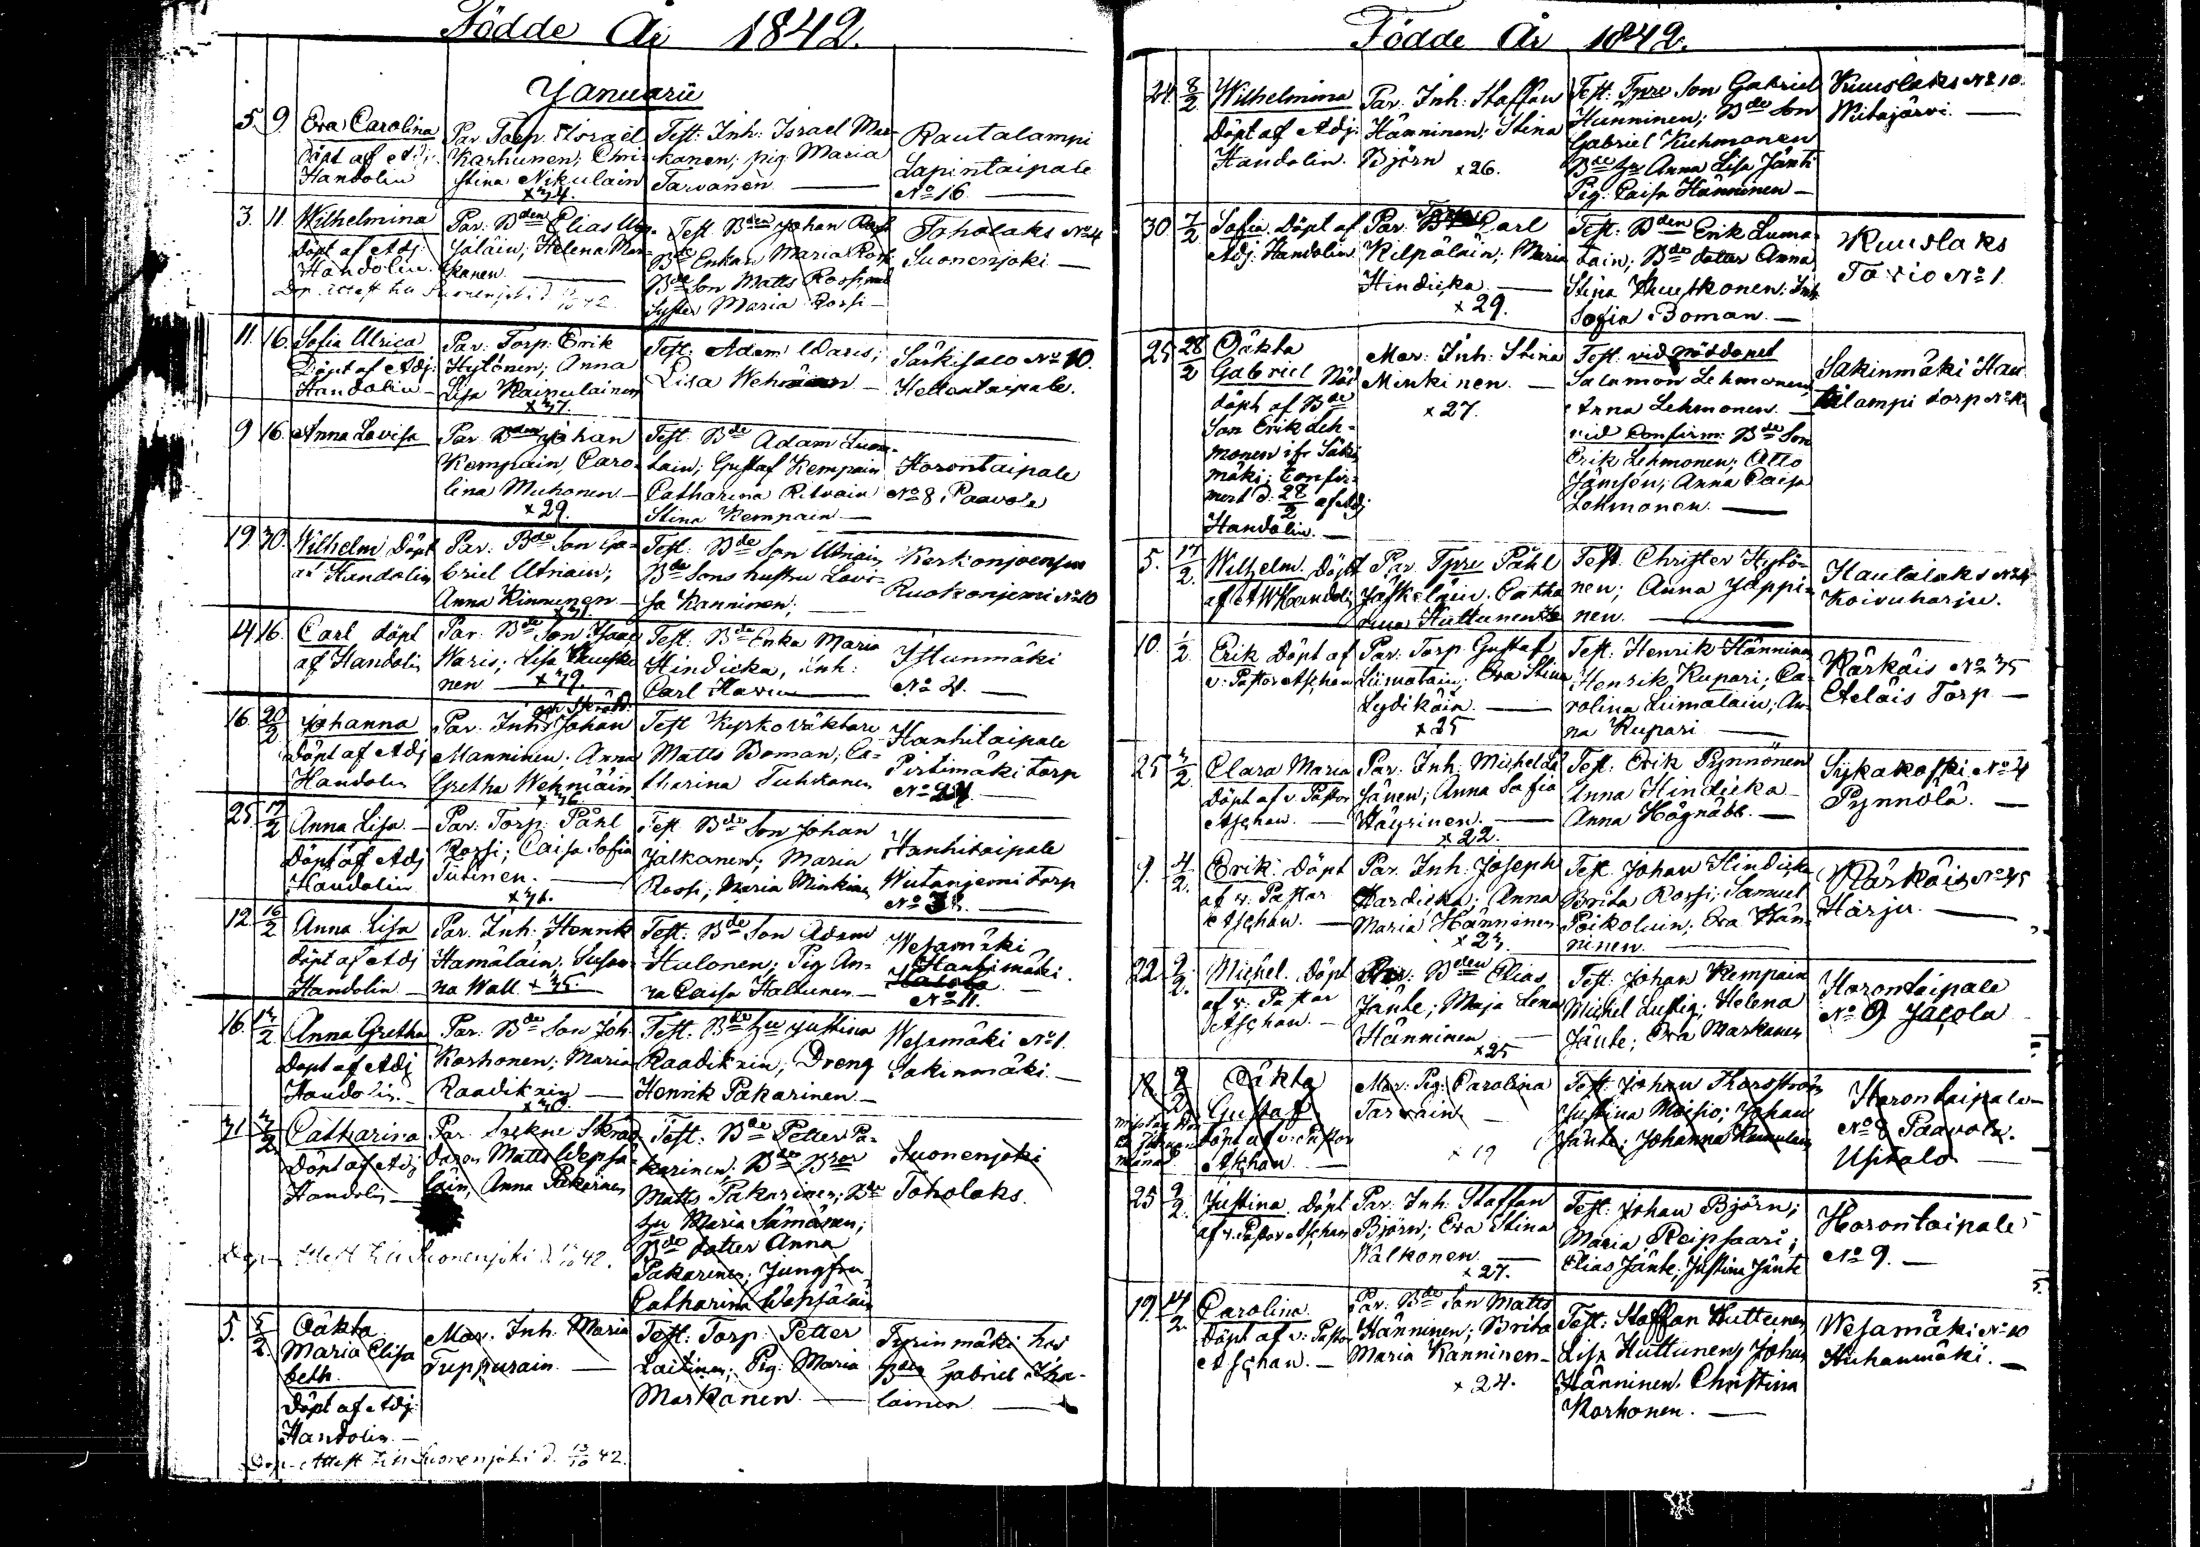 Födde År 1842.
Januarii
5. 9. Eva Carolina
Döpt af Adj:
Handolin
Par. Torp: Israel
Karhunen; Chri-
stina Nikulain
x 34.
Test: Inh: Israel Mar-
kanen; pig. Maria
Tarvanen
Rautalampi
Lapintaipale
No 16.
3. 11. Wilhelmina
döpt af Adj:
Handolin.
Par. Bden Elias
Helena Mar-
kanen.
Test Bden Johan Rossi
Bde Enkan Maria Rossi
Bde Son Matts Rossi
Syster Maria Rossi
Toholaks No 4
Suonenjoki
Dop-Attest till Suonenjoki d.
11. 16. Sofia Ulrica
Döpt af Adj:
Handolin
Par. Torp: Erik
Hytönen; Anna
Lisa Kainulainen
x 37.
Test: Adam Waris;
Lisa Wehmäinen
Särkisalo No 10.
Hettontaipale.
9 16. Anna Lovisa
Par. Bden Johan
Kempain, Caro-
lina Muhonen
x 29.
Test: Bde Adam
tain; Gustaf Kempain
Catharina
Stina Kempain
Horontaipale
No 8. Paavola
19 30. Wilhelm Döpt
af Handolin
Par: Bde Son Ga-
briel Utriain;
Anna Kinnunen
x 31
Test: Bde Son Utriain
Bde Sons hustru Lovi-
sa Kanninen;
Kerkonjoensuu
Ruokoniemi No 10
14 16. Carl döpt
af Handolin
Par. Bde Son Isaac
Waris; Lisa Kuuski-
nen x 39.
Test: Bde Enka Maria
Hindicka, Inh:
Carl Harin
Istunmäki
No 21.
16. 20/2 Johanna
Döpt af Adj
Handolin
Par. Inh: och Skrädd: Johan
Manninen. Anna
Gretha Wehmäin
x 36
Test Kyrkoväktare
Matts Boman; Ca-
tharina Tuhkanen
Hanhitaipale
Pirtimäki torp
No 24
25. 17/2 Anna Lisa.
Döpt af Adj
Handolin
Par. Torp: Påhl
Rossi; Caisa Sofia
Tiitinen.
x 31.
Test Bde Son Johan
Jalkanen; Maria
Rossi; Maria Minkinen
Hanhitaipale
Wutaniemi torp
12. 16/2 Anna Lisa
döpt af Adj
Handolin
Par. Inh: Henrik
Hämäläin; Susan-
na Wall. x 35.
Test: Bde Son Adam
Hulonen; Pig An-
na Caisa Halkunen
Wesamäki
Hankimäki.
No 11.
16. 13/2 Anna Gretha
Döpt af Adj
Handolin
Par. Bde Son Joh.
Korhonen; Maria
Raadikain
x 30.
Test: Bde Hu Justina
Raadikain, Dreng
Henrik Pakarinen
Wesamäki No 1.
Sakinmäki.
31 3/2 Catharina
Döpt af Adj
Handolin
Par. Sockne Skräd-
daren Matts Wepsä-
läin, Anna Pakarinen
Test: Bde Petter Pa-
karinen; Bde Bror
Matts Pakarinen; Bde
Hu Maria Sämänen;
Bde dotter Anna
Pakarinen; Jungfru
Catharina Wepsäläin
Suonenjoki
Toholaks.
Dop-Attest till Suonenjoki d. 42.
5. 5/2. Oäkta
Maria Elisa
beth.
Döpt af Adj
Handolin.
Mor. Inh: Maria
Tuppurain.
Test: Torp: Petter
Laitinen; Pig: Maria
Markanen
Tyrinmäki hos
Bden Gabriel
lainen
Dop-Attest till Suonenjoki d. 42.
Födde År 1842.
24. 8/2 Wilhelmina
Döpt af Adj:
Handolin.
Par. Inh: Staffan
Hänninen; Stina
Björn x 26.
Test: Tpre Son Gabriel
Hänninen; Bde Son
Gabriel Kuhmonen
Bde Hu Anna Lisa Jänti
Pig. Caisa Hänninen
Kuuslaks No 10.
Wiitajärvi.
30 7/2 Sofia Döpt af
Adj. Handolin
Par. Carl
Kilpäläin; Maria
Hindicka.
x 29.
Test: Bden Erik Luma-
tain; Bde dotter Anna
Stina Kuuskonen: Inh
Sofia Boman.
Kuuslaks
No 1.
25 28/2 Oäkta
Gabriel Nöd
döpt af Bde
Son Erik Leh-
monen ifr. Säki
mäki; Confir-
mert d. 28/2 af Adj
Handolin.
Mor: Inh: Stina
Minkinen.
x 27.
Test: vid nöddopet
Salomon Lehmonen,
Anna Lehmonen.
vid Confirm: Bde Son
Erik Lehmonen; Otto
Jämsen; Anna Caisa
Lehmonen.
Sakinmäki Hau-
kilampi torp
5. 17/2. Wilhelm. Döpt
af Handolin
Par. Tpre Påhl
Jäskeläin. Catha
rina Huttunen
Test. Christer Hytö-
nen; Anna Jäppi-
nen.
Hautalaks No 4
Koivuharju.
10. 1/2 Erik Döpt af
v. Pastor Aschan
Par. Torp. Gustaf
Liimatain. Eva Stina
Lydikäin
x 25
Test. Henrik Hänninen
Henrik Kupari; Ca-
rolina Liimatain; An-
na Kupari
Kärkäis No 35
Eteläis Torp.
25 3/2. Clara Maria
Döpt af v Pastor
Aschan.
Par. Inh: Michel
Anna Sofia
Häyrinen.
x 22.
Test. Erik Pynnönen
Anna Hindicka
Anna Högnäbb.
Sykäkoski No 4
Pynnölä.
9. 4/2. Erik. Döpt
af v. Pastor
Aschan.
Par. Inh: Joseph
Hardicka; Anna
Maria Hänninen
x 23.
Test. Johan Hindicka
Brita Rossi; Samuel
Poikolain; Eva Hän-
ninen.
Kärkäis No 35
Harju.
22. 9/2. Michel. Döpt
af v. Pastor
Aschan.
Par. Bden Elias
Jänte; Maja Lena
Hänninen
x 25
Test. Johan Kempain
Michel Lustig; Helena
Jänte; Eva Markanen
Horontaipale
No 9 Jacola
9/2 Oäkta
Gustaf.
Döpt af v. Pastor
Aschan
Mor: Pig: Carolina
Tarvain
x 19
Test. Johan Thorsström
Justina Moisio; Johan
Jänte; Johanna
Horontaipale
No 8 Paavola.
Usitalo
25 9/2. Justina. Döpt
af v. Pastor Aschan
Par. Inh: Staffan
Björn; Eva Stina
Walkonen.
x 27.
Test: Johan Björn;
Maria Reipsaari;
Elias Jänte; Justina Jänte
Horontaipale
No 9.
19. 14/2. Carolina.
Döpt af v. Pastor
Aschan.
Par. Bde Son Matts
Hänninen; Brita
Maria Kanninen
x 24.
Test: Staffan Huttunen,
Lisa Huttunen, Johan
Hänninen. Christina
Korhonen.
Wesamäki No 10
Huhanmäki.